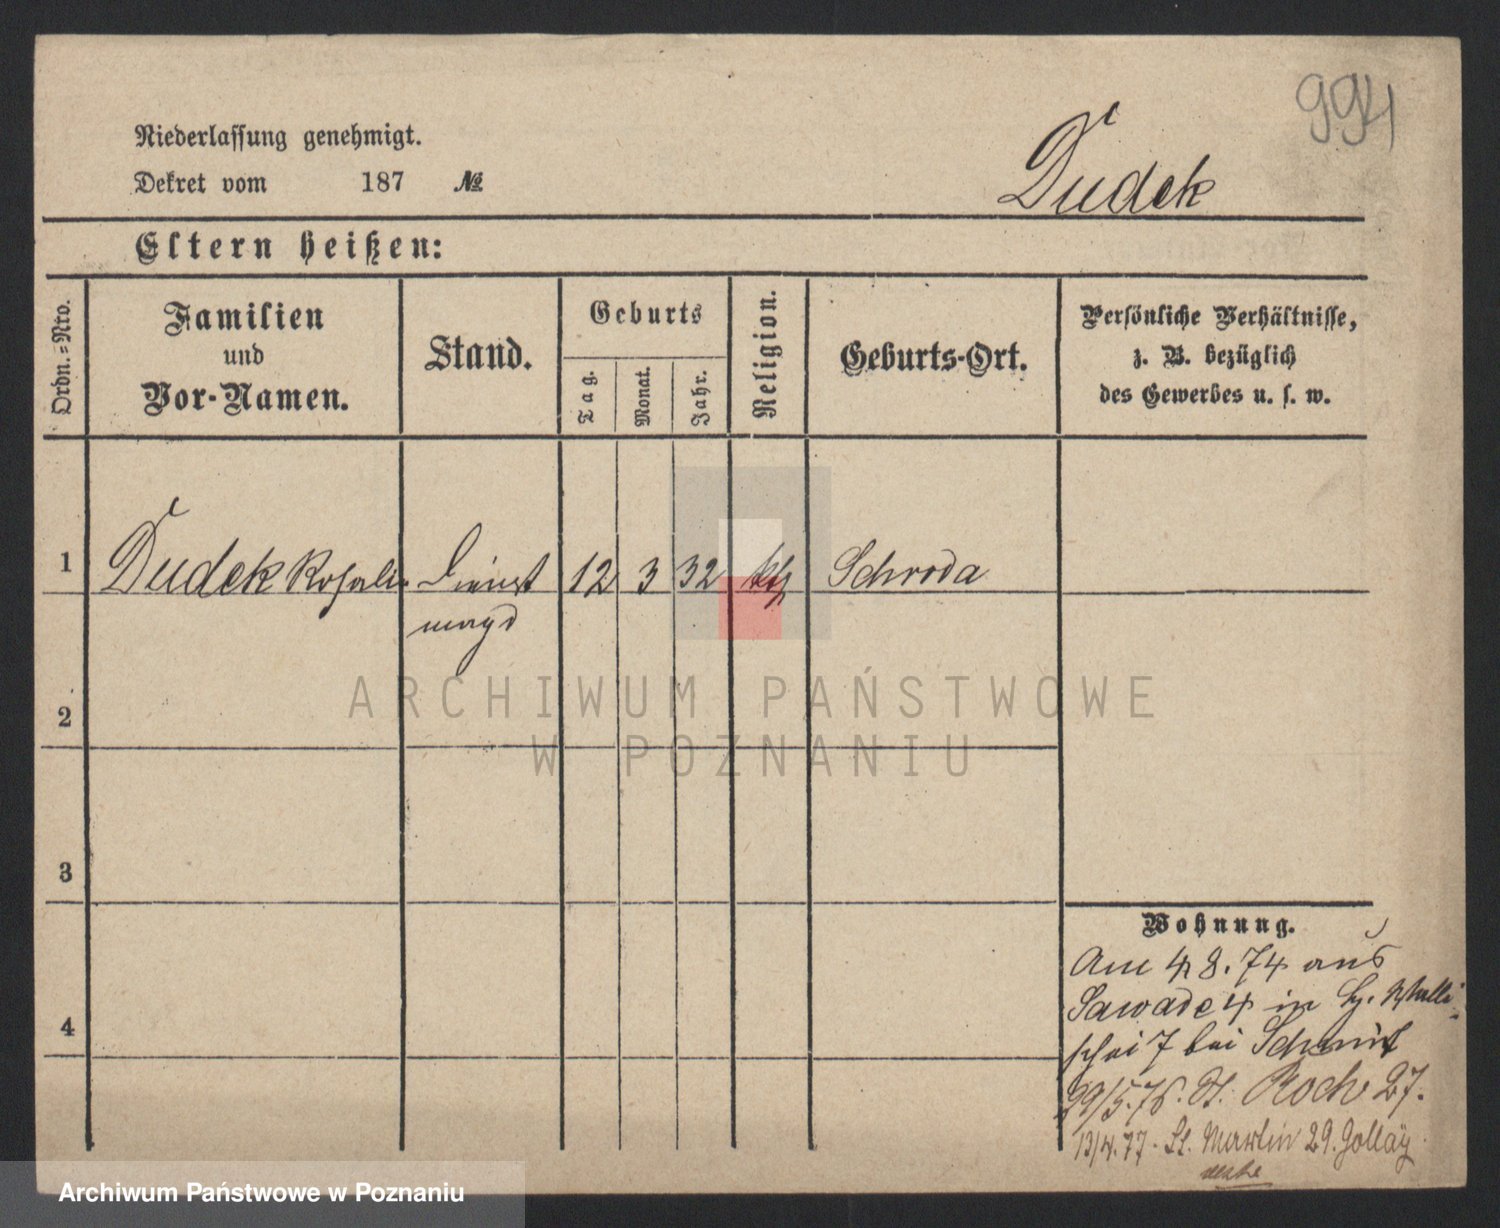 994
Niederlassung genehmigt.
Dekret vom 187 №
Dudek
Eltern heißen:
Ordn.=Nro.
Familien
und
Vor-Namen.
Stand.
Geburts
Tag.
Monat.
Jahr.
Religion.
Geburts-Ort.
Persönliche Verhältnisse,
z. B. bezüglich
des Gewerbes u. s. w.
1 Dudek Rosalie Dienst 12 3 32 kth Schroda
magd
2
3
4
Wohnung.
Am 4 8. 74 aus
Sawade 4 in
schei 7 bei Schmit
29/5. 76. St. Roch 27.
13/4. 77. St. Martin 29.
ARCHIWUM PAŃSTWOWE
W POZNANIU
Archiwum Państwowe w Poznaniu